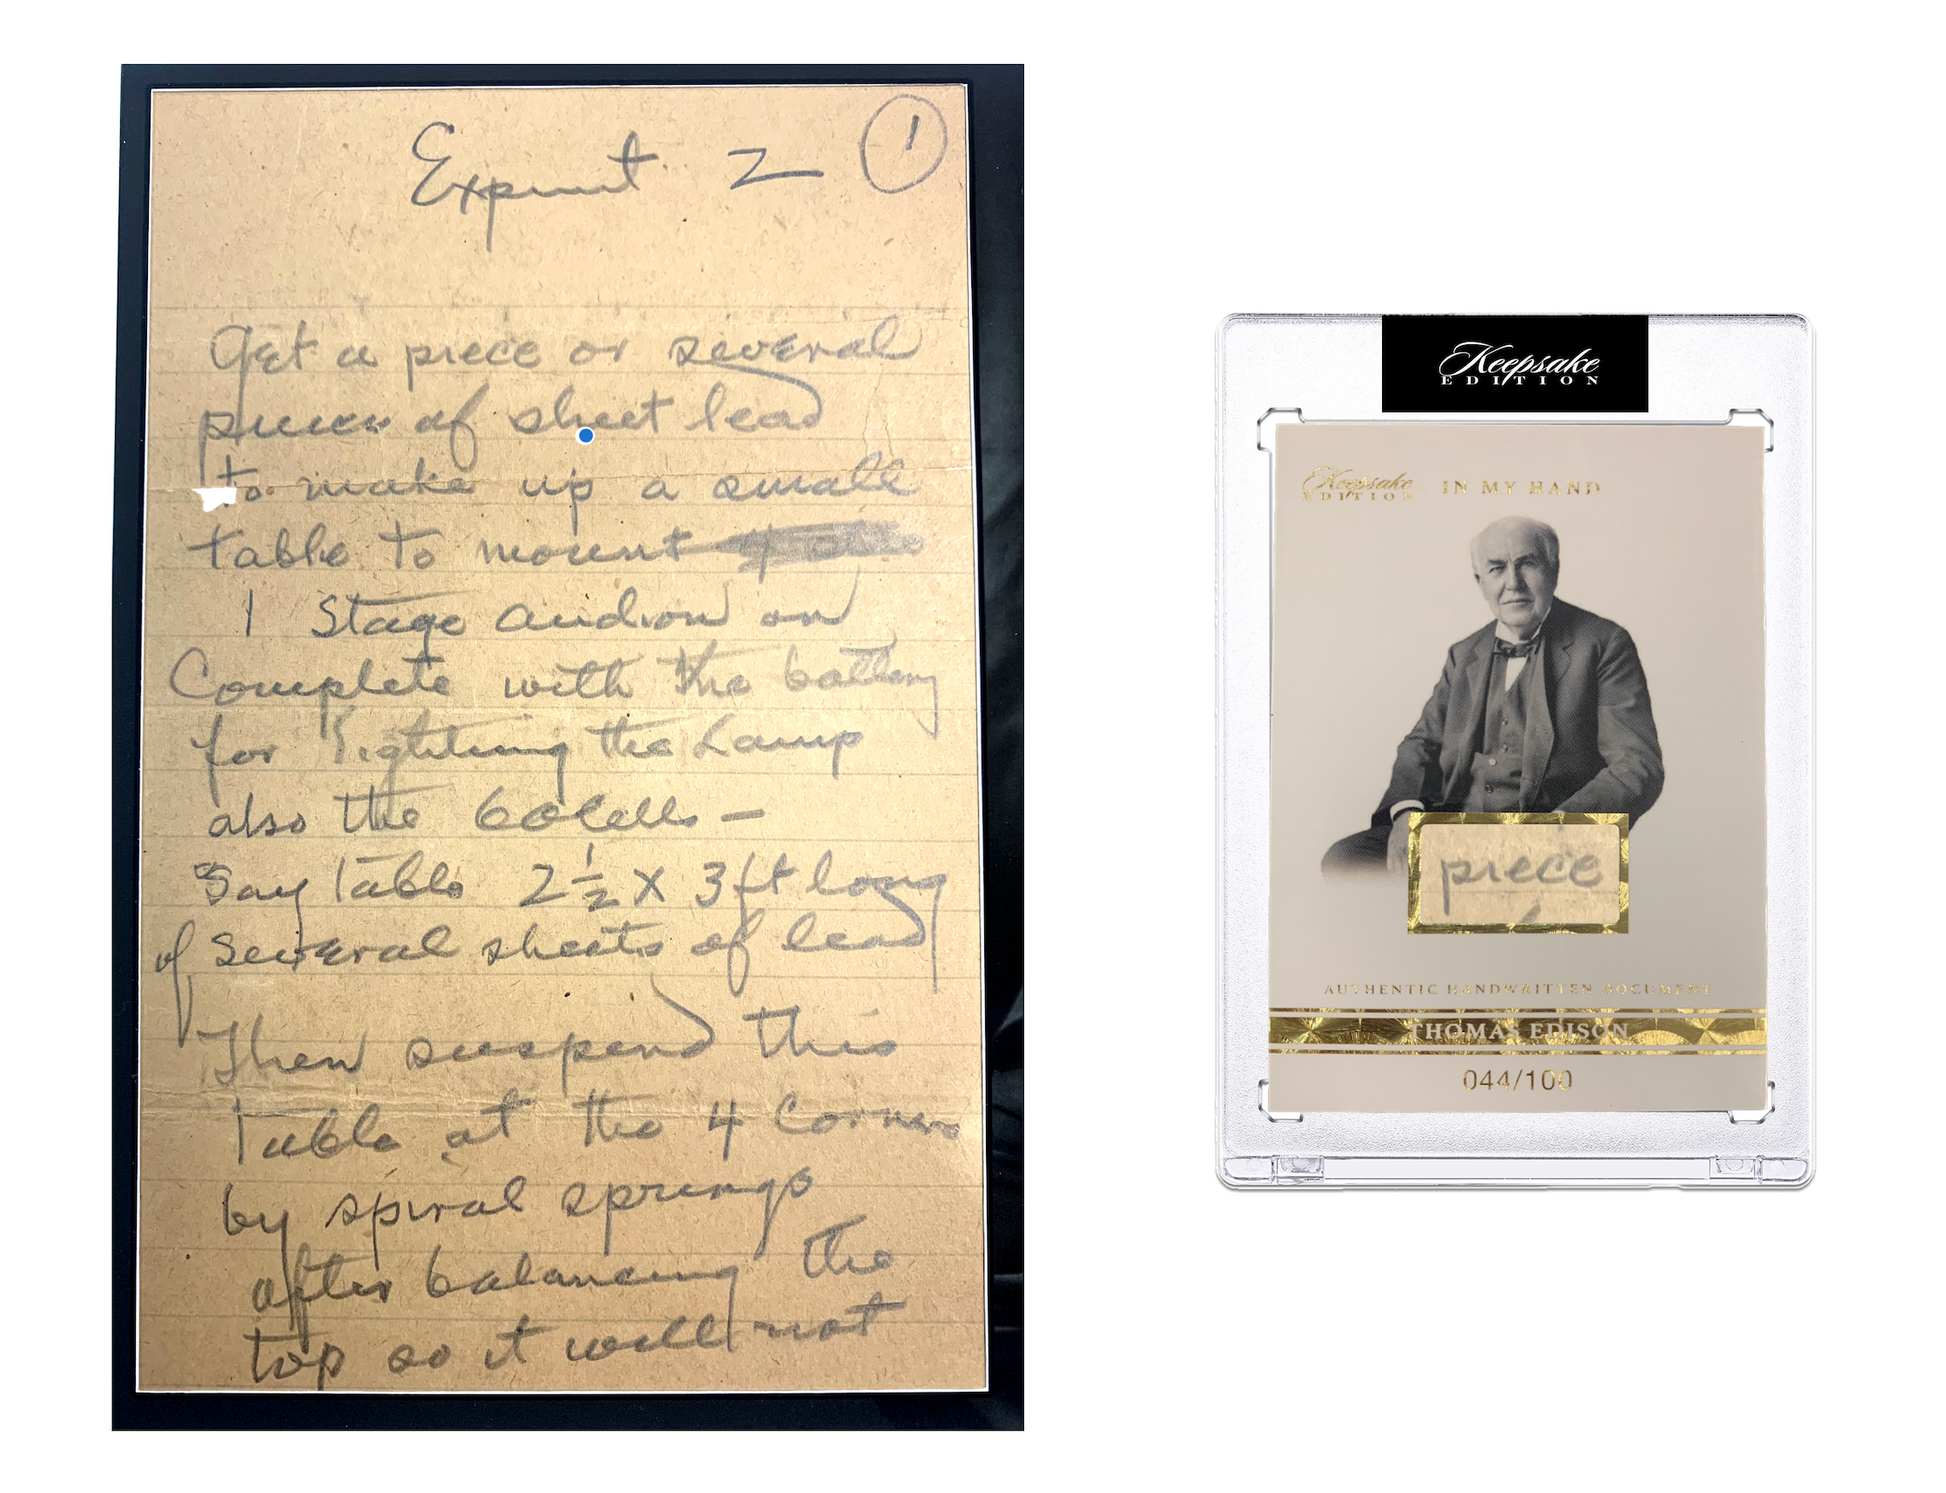 Expmnt 2
1
Get a piece or several
pieces of sheet lead
to make up a small
table to mount
1 Stage audion on
Complete with the battery
for lighting the Lamp
also the 60 Cells —
Say table 2 1/2 X 3 ft long
of several sheets of lead
Then suspend this
table at the 4 Corners
by spiral springs
after balancing the
top so it will not
Keepsake
EDITION
Keepsake
EDITION
IN MY HAND
piece
AUTHENTIC HANDWRITTEN DOCUMENT
THOMAS EDISON
044/100